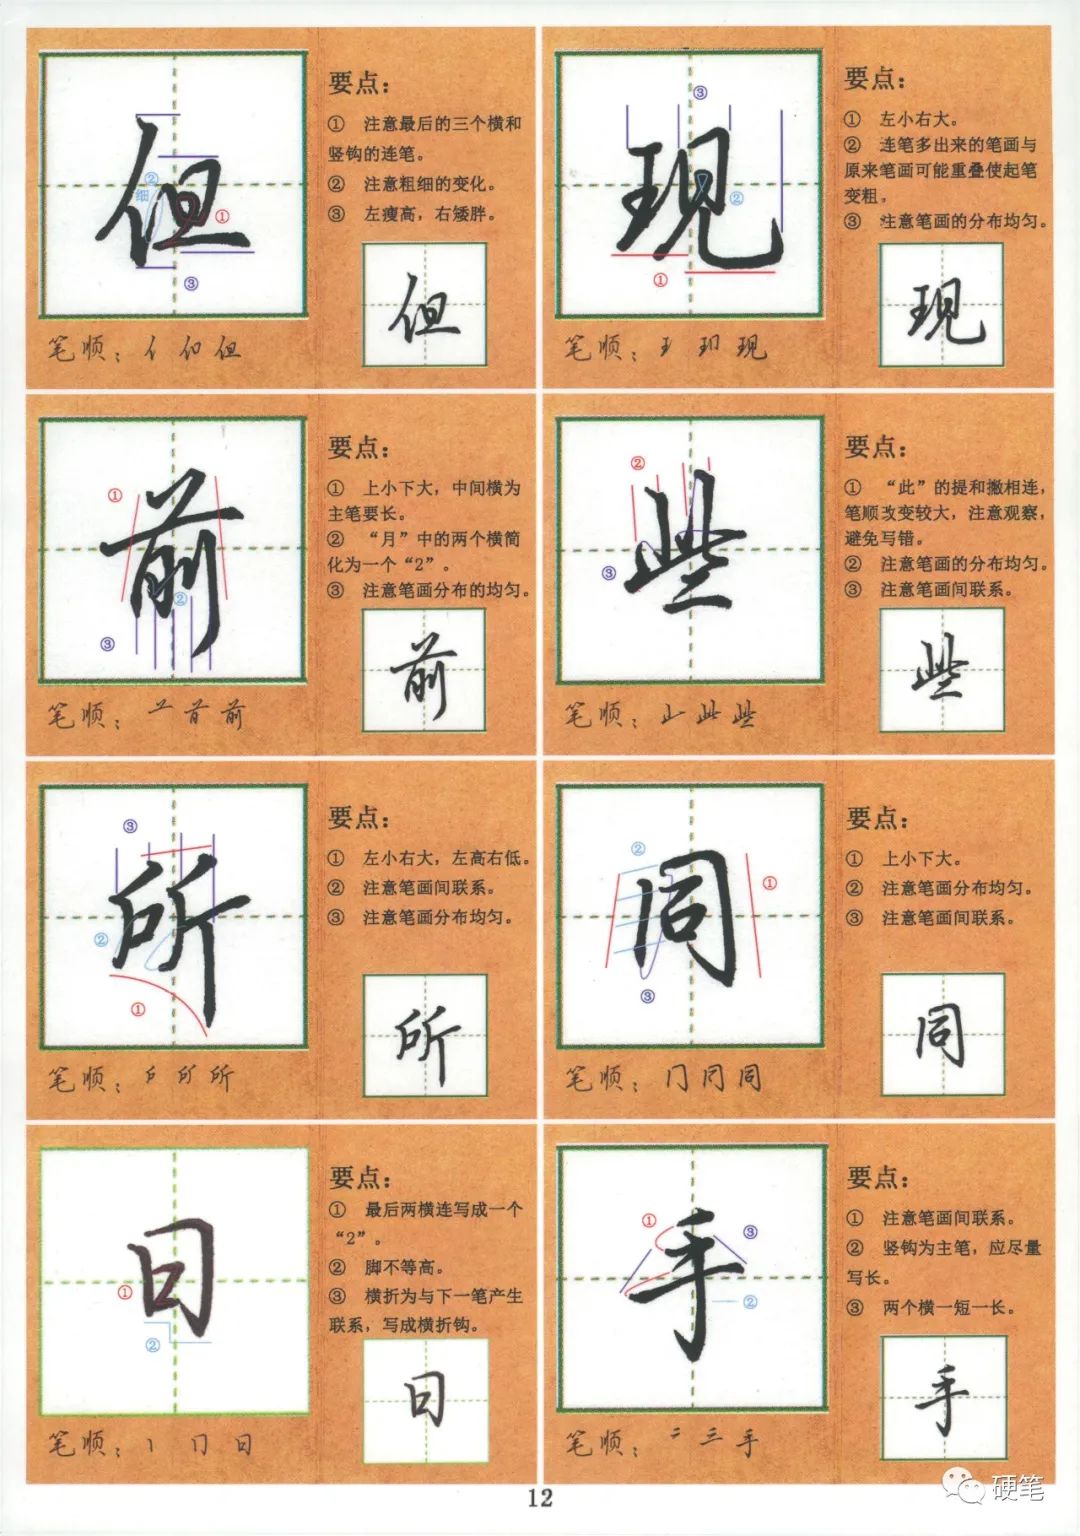 但
细
②
①
③
要点：
① 注意最后的三个横和
竖钩的连笔。
② 注意粗细的变化。
③ 左瘦高，右矮胖。
但
笔顺：亻 们 但
现
③
②
①
要点：
① 左小右大。
② 连笔多出来的笔画与
原来笔画可能重叠使起笔
变粗。
③ 注意笔画的分布均匀。
现
笔顺：
现
前
①
②
③
要点：
① 上小下大，中间横为
主笔要长。
② “月”中的两个横简
化为一个“2”。
③ 注意笔画分布的均匀。
前
笔顺：
前
些
②
③
要点：
① “此”的提和撇相连，
笔顺改变较大，注意观察，
避免写错。
② 注意笔画的分布均匀。
③ 注意笔画间联系。
些
笔顺：
此 些
所
③
②
①
要点：
① 左小右大，左高右低。
② 注意笔画间联系。
③ 注意笔画分布均匀。
所
笔顺：
所
同
②
①
③
要点：
① 上小下大。
② 注意笔画分布均匀。
③ 注意笔画间联系。
同
笔顺：
同
日
①
②
要点：
① 最后两横连写成一个
“2”。
② 脚不等高。
③ 横折为与下一笔产生
联系，写成横折钩。
日
笔顺：丨 冂 日
手
①
③
②
要点：
① 注意笔画间联系。
② 竖钩为主笔，应尽量
写长。
③ 两个横一短一长。
手
笔顺：
三 手
12
硬笔